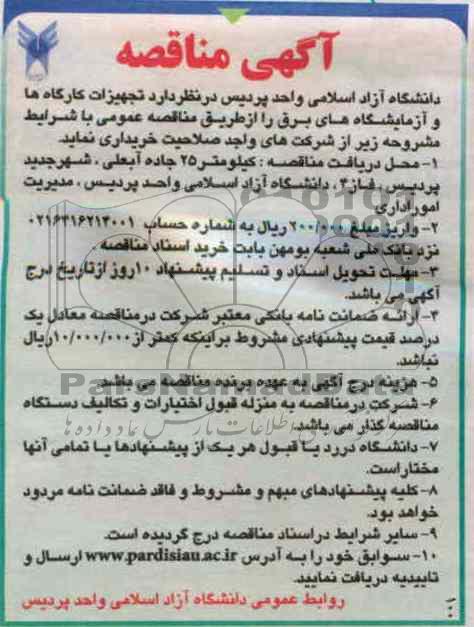 آگهی مناقصه
دانشگاه آزاد اسلامی واحد پردیس درنظردارد تجهیزات کارگاه ها
و آزمایشگاه های برق را ازطریق مناقصه عمومی با شرایط
مشروحه زیر از شرکت های واجد صلاحیت خریداری نماید.
۱- محل دریافت مناقصه : کیلومتر۲۵ جاده آبعلی ، شهرجدید
پردیس ، فاز۴ ، دانشگاه آزاد اسلامی واحد پردیس ، مدیریت
اموراداری
۲- واریز مبلغ ۲۰۰/۰۰۰ ریال به شماره حساب
نزد بانک ملی شعبه بومهن بابت خرید اسناد مناقصه
۳- مهلت تحویل اسناد و تسلیم پیشنهاد ۱۰روز ازتاریخ درج
آگهی می باشد.
۴- ارائه ضمانت نامه بانکی معتبر شرکت درمناقصه معادل یک
درصد قیمت پیشنهادی مشروط براینکه کمتر از ۱۰/۰۰۰/۰۰۰ریال
نباشد.
۵- هزینه درج آگهی به عهده برنده مناقصه می باشد
۶- شرکت درمناقصه به منزله قبول اختیارات و تکالیف دستگاه
مناقصه گذار می باشد.
۷- دانشگاه دررد یا قبول هر یک از پیشنهادها یا تمامی آنها
مختاراست.
۸- کلیه پیشنهادهای مبهم و مشروط و فاقد ضمانت نامه مردود
خواهد بود.
۹- سایر شرایط دراسناد مناقصه درج گردیده است.
۱۰- سوابق خود را به آدرس www.pardisiau.ac.ir ارسال و
تاییدیه دریافت نمایید.
روابط عمومی دانشگاه آزاد اسلامی واحد پردیس